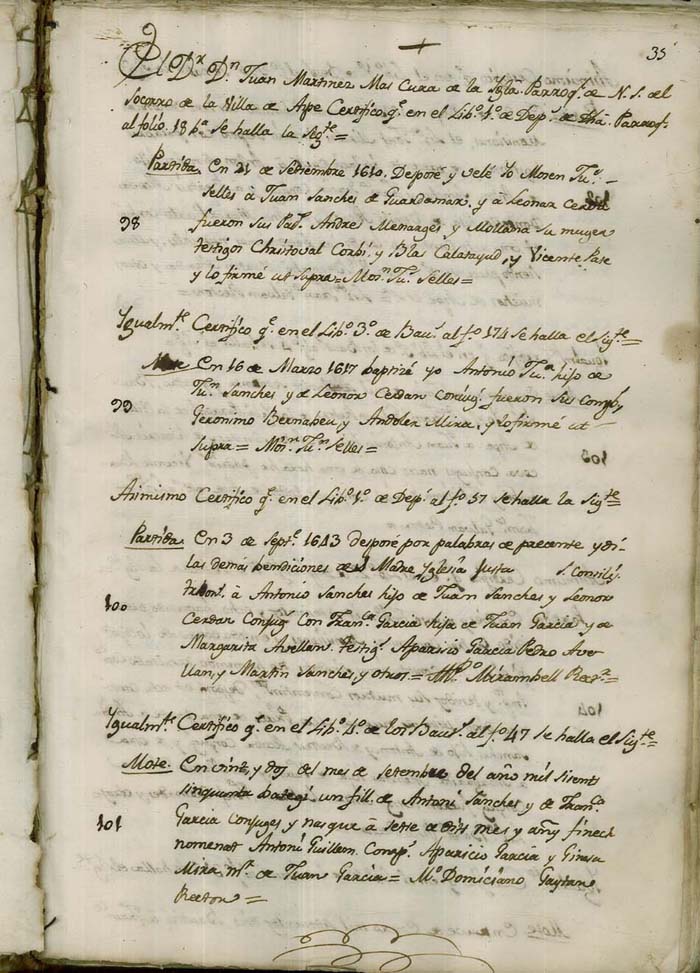 35
El Dr. Dn. Juan Martinez Mas Cura de la Igla. Parroql. de N. S. del
Socorro de la Villa de Aspe Certifico qe. en el Libo. 1o. de Desps. de dha. Parroqa.
al folio 18 ba. se halla la Sigte. =
Partida. En 21 de Setiembre 1610. Desposé y velé Yo Mosen Jun.
Selles à Juan Sanches de Guardamar, y à Leonor Cerdan
98 fueron sus Pads. Andres Menarges, y Mollana su muger
testigos Christoval Corbi, y Blas Calatayud, y Vicente
y lo firmé ut supra = Mosn. Jun. Selles =
Ygualmte. Certifico qe. en el Libo. 3o. de Baus. al fo. 174 se halla el Sigte. =
Mote En 16 de Marzo 1617 baptizé yo Antonio Jun. hijo de
Jun. Sanches y de Leonor Cerdan conjug. fueron sus Comps.
99 Geronimo Bernabeu, y Mira, y lo firmé ut
supra = Mosn. Jun. Selles =
Asimismo Certifico qe. en el Libo. 1o. de Desps. al fo. 57 se halla la Sigte. =
Partida. En 3 de Septe. 1643 desposé por palabras de presente y di
las demás bendiciones de Madre Yglesia justa S. Consily
100 tridont. à Antonio Sanches hijo de Juan Sanches y Leonor
Cerdan Conjug. Con Franca. Garcia hija de Juan Garcia y de
Margarita Avellan. testigs. Aparisio Garcia Pedro Ave-
llan, y Martin Sanches, y otros = Mirambell Rectr. =
Ygualmte. Certifico qe. en el Libo. 4o. de los Baus. al fo. 47 se halla el Sigte. =
Mote. En vint, y dos del mes de setembre del año mil sisents
sinquanta bategi un fill de Antoni Sanches y de Franca.
101 Garcia Conjuges y nasque à sette de dits mes y any finech
nomenat Antoni Guillem. Comps. Aparicio Garcia y Girasa
Mira mr. de Juan Garcia = Mo. Domiciano Gaytan
Rector =